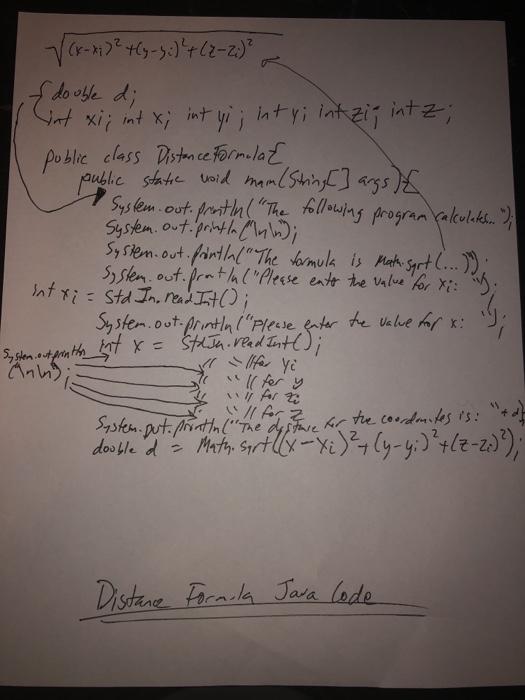 √(x-xi)²+(y-yi)²+(z-zi)²
{double d;
int xi; int x; int yi; int y; int zi; int z;
public class DistanceFormula{
public static void main(String[] args){
System.out.println("The following program calculates...");
System.out.println("\n\n");
System.out.println("The formula is Math.sqrt(...)");
System.out.println("Please enter the value for xi: ");
int xi = StdIn.readInt();
System.out.println("Please enter the value for x: ");
int x = StdIn.readInt();
System.out.println
("\n\n");
" " //for yi
" " // for y
" " // for zi
" " // for z
System.out.println("The distance for the coordinates is: "+d);
double d = Math.sqrt((x-xi)²+(y-yi)²+(z-zi)²);
Distance Formula Java Code